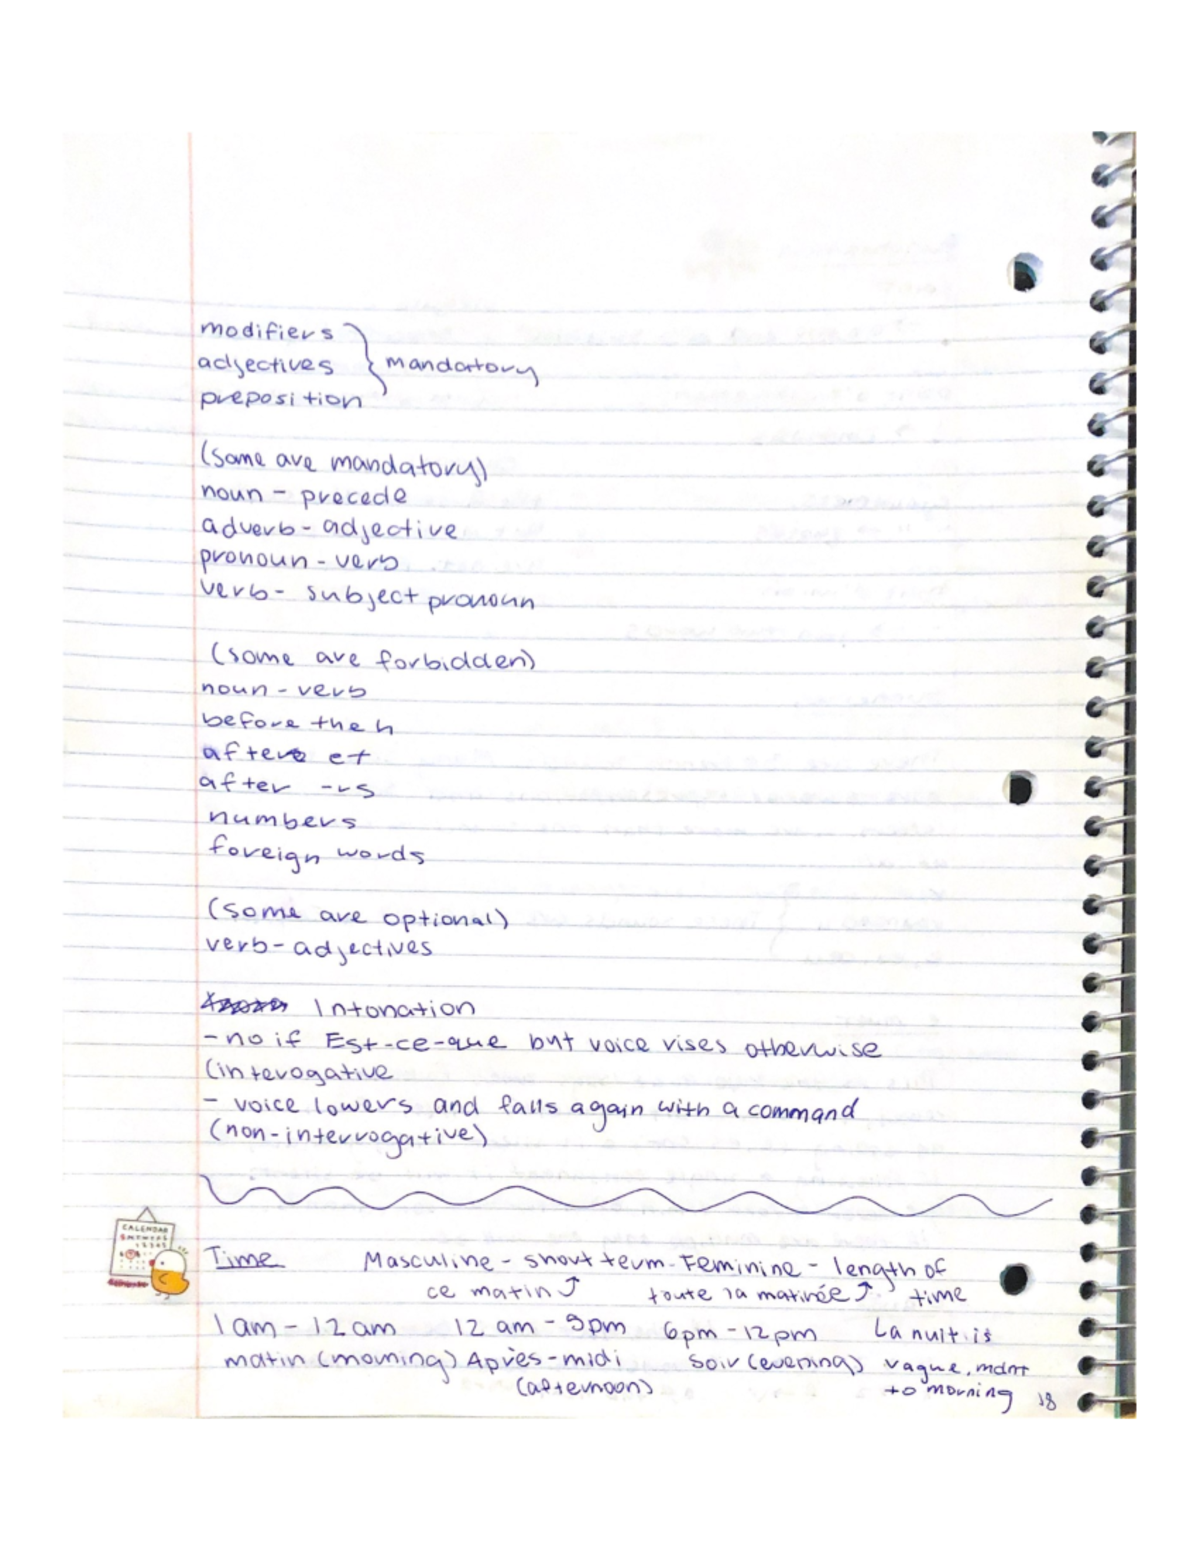 modifiers
adjectives } mandatory
preposition
(some are mandatory)
noun - precede
adverb - adjective
pronoun - verb
verb - subject pronoun
(some are forbidden)
noun - verb
before the h
after et
after -rs
numbers
foreign words
(some are optional)
verb - adjectives
Intonation
- no if Est-ce-que but voice rises otherwise
(interogative
- voice lowers and falls again with a command
(non-interrogative)
CALENDAR
Time Masculine - short term. Feminine - length of
ce matin ↑ toute la matinée ↑ time
1am - 12am 12am - 5pm 6pm - 12pm La nuit is
matin (morning) Après-midi soir (evening) vague, mdnt
(afternoon) to morning 18